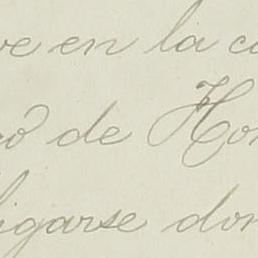 ve en la c
de Hon
ligarse don